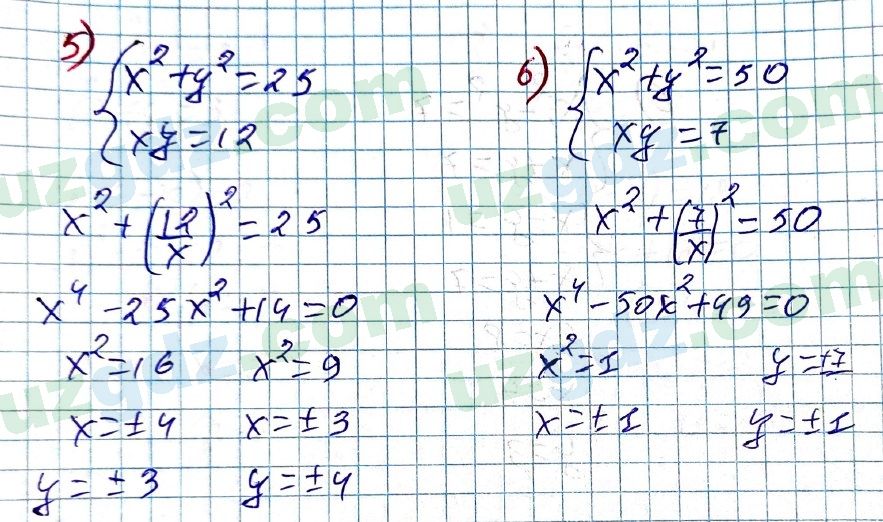 5) { x² + y² = 25
xy = 12
x² + (12/x)² = 25
x⁴ - 25x² + 14 = 0
x² = 16 x² = 9
x = ± 4 x = ± 3
y = ± 3 y = ± 4
6) { x² + y² = 50
xy = 7
x² + (7/x)² = 50
x⁴ - 50x² + 49 = 0
x² = 1 y = ±7
x = ± 1 y = ± 1
uzgdz.com
uzgdz.com
uzgdz.com
uzgdz.com